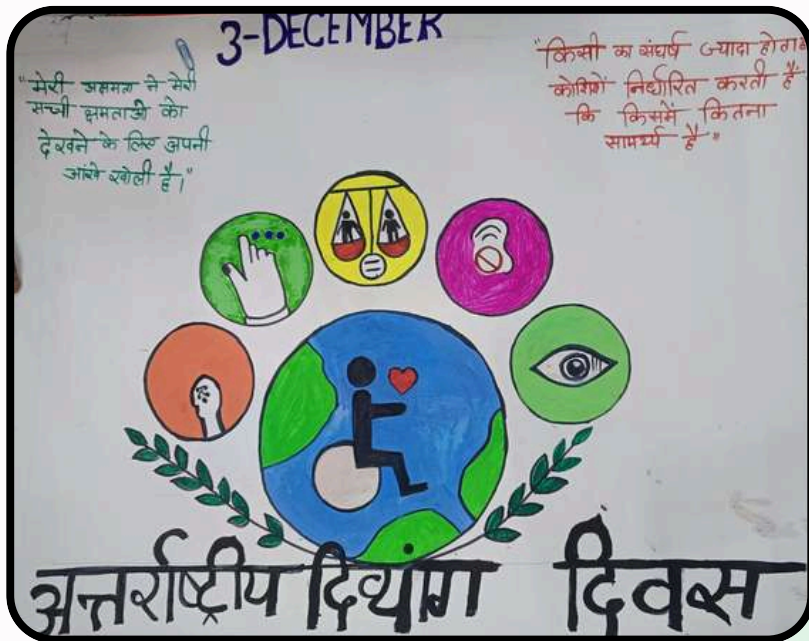 3-DECEMBER
"मेरी अक्षमता ने मेरी
सच्ची क्षमताओं को
देखने के लिए अपनी
आंखे खोली है।"
"किसी का संघर्ष ज्यादा होगा
कोशिशें निर्धारित करती हैं
कि किसमें कितना
सामर्थ्य है"
अन्तर्राष्ट्रीय दिव्यांग दिवस